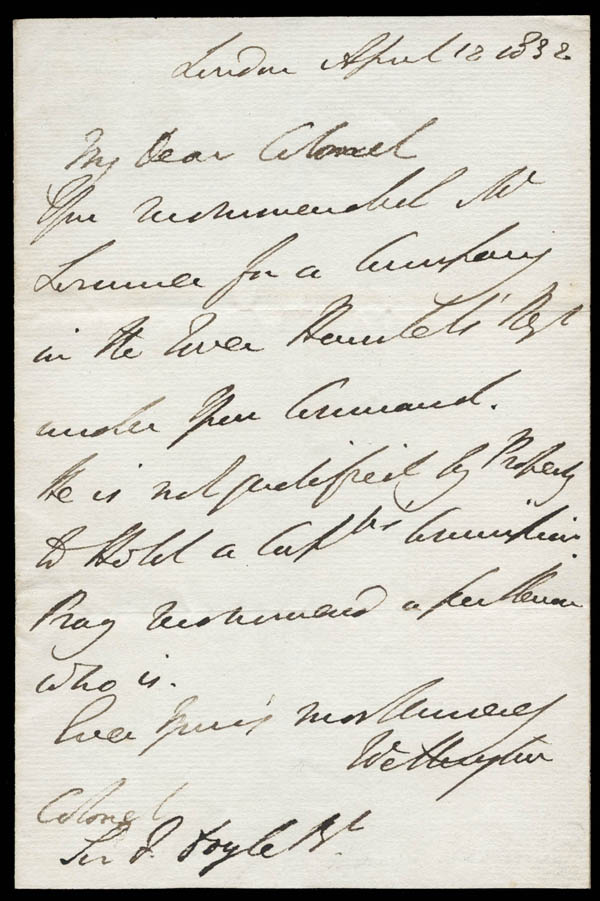 London April 12 1832
My Dear Colonel
You recommended Mr
Lorimer for a Company
in the Tower Hamlets' Regt
under your Command.
He is not qualified by Property
to Hold a Captns Commission.
Pray recommend a Gentleman
who is.
Ever Yours most sincerely
Wellington
Colonel
Sir F. Doyle Bt